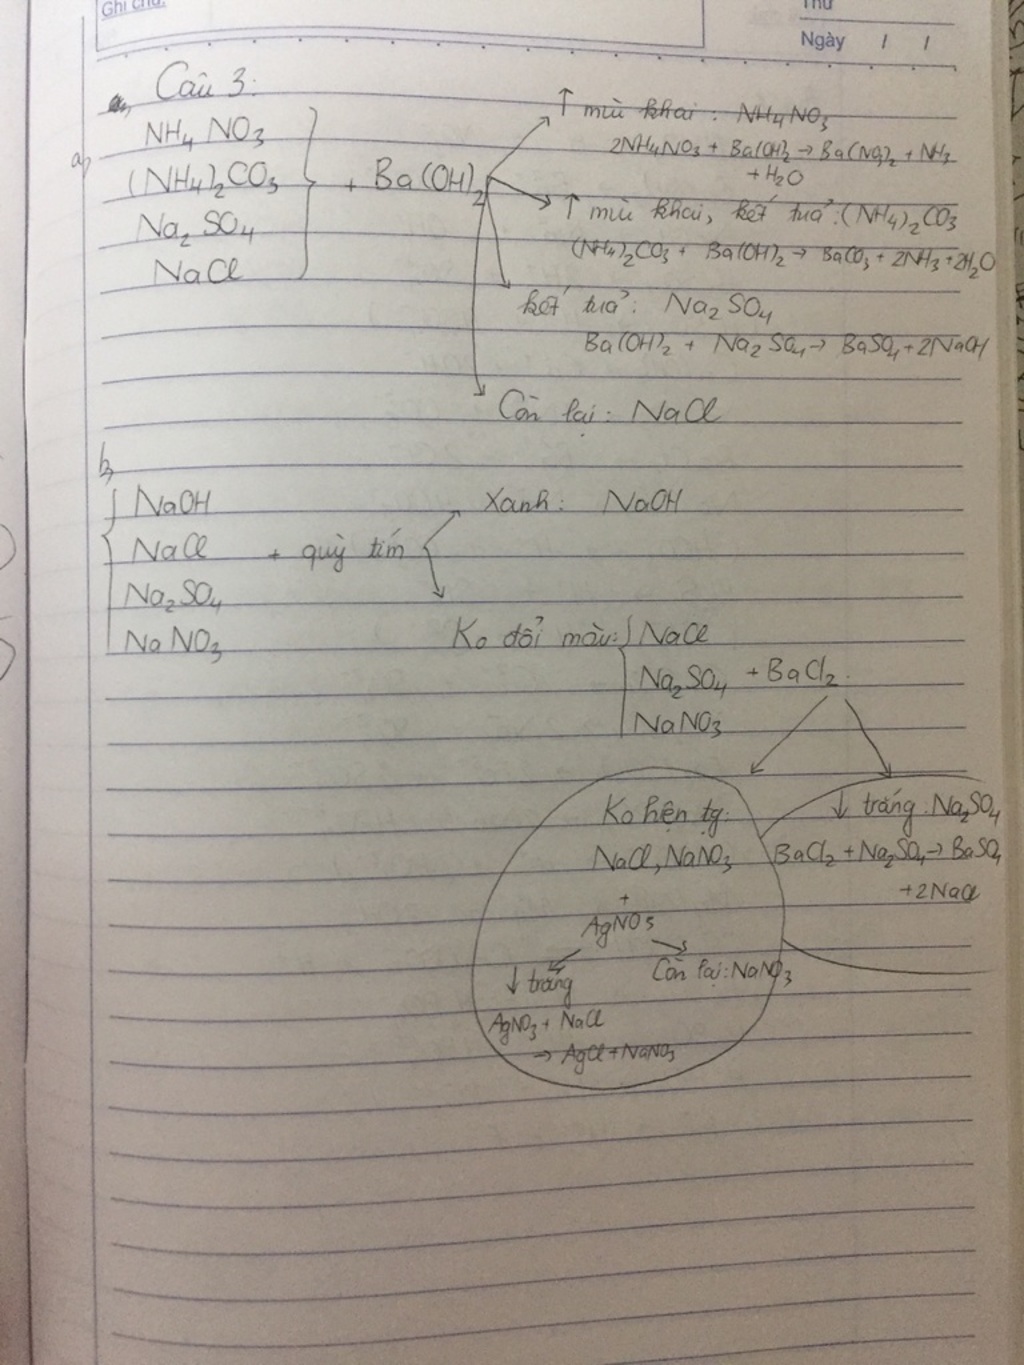 Ghi chú:
Thứ
Ngày / /
Câu 3:
a,
NH4 NO3
(NH4)2CO3
Na2 SO4
NaCl
+ Ba(OH)2
↑ mùi khai : NH4NO3
2NH4NO3 + Ba(OH)2 → Ba(NO3)2 + NH3
+ H2O
↑ mùi khai, kết tuả : (NH4)2CO3
(NH4)2CO3 + Ba(OH)2 → BaCO3 + 2NH3 + 2H2O
kết tuả : Na2 SO4
Ba(OH)2 + Na2 SO4 → BaSO4 + 2NaOH
Còn lại : NaCl
b,
NaOH
NaCl
Na2SO4
NaNO3
+ quỳ tím
Xanh : NaOH
Ko đổi màu :
NaCl
Na2SO4
NaNO3
+ BaCl2
Ko hiện tg :
NaCl, NaNO3
+
AgNO3
↓ trắng
AgNO3 + NaCl
→ AgCl + NaNO3
Còn lại : NaNO3
↓ trắng : Na2SO4
BaCl2 + Na2SO4 → BaSO4
+ 2NaCl